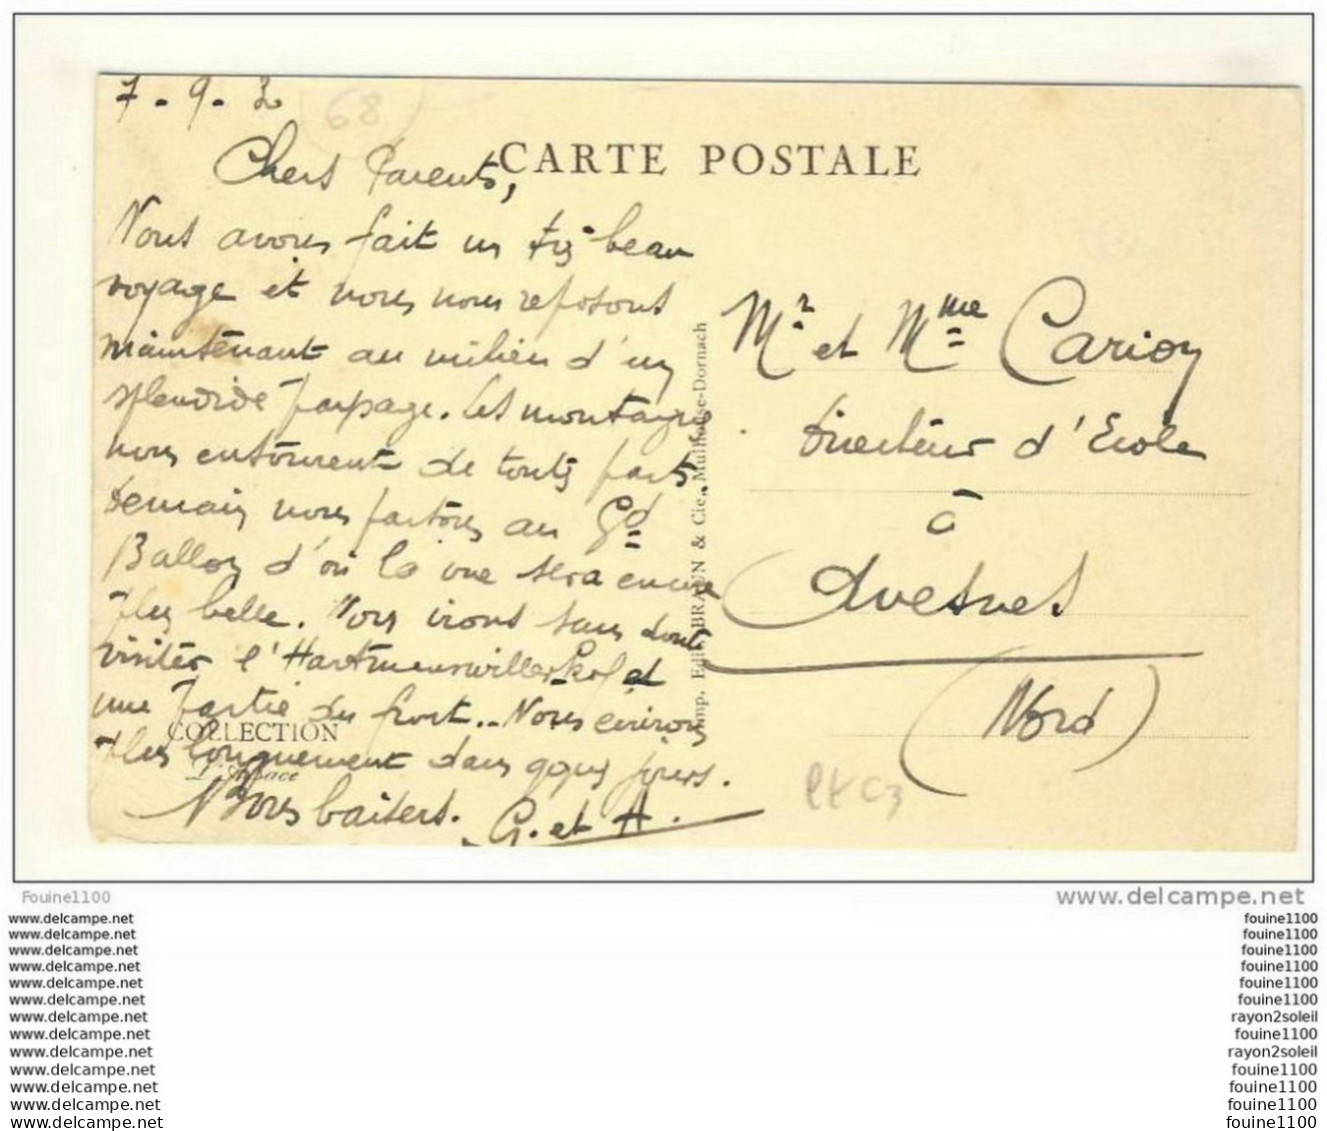 7-9-30
68
Chers Parents,
CARTE POSTALE
Nous avons fait un très beau
voyage et nous nous reposons
maintenant au milieu d'un
splendide paysage. Les montagnes
nous entourent de toutes parts
demain nous partons au Gd
Ballon d'où la vue sera encore
plus belle. Nous irons sans doute
visiter l'Hartmannswillerkopf et
une partie du front. Nous écrirons
plus longuement dans qques jours.
Nos bons baisers. G. et A.
COLLECTION
L'Alsace
Imp. Edit. BRAUN & Cie, Mulhouse-Dornach
Mr et Mme Carion
Directeur d'Ecole
à
Avesnes
(Nord)
Fouine1100
www.delcampe.net
www.delcampe.net
fouine1100
www.delcampe.net
fouine1100
www.delcampe.net
fouine1100
www.delcampe.net
fouine1100
www.delcampe.net
fouine1100
www.delcampe.net
fouine1100
www.delcampe.net
rayon2soleil
www.delcampe.net
fouine1100
www.delcampe.net
rayon2soleil
www.delcampe.net
fouine1100
www.delcampe.net
fouine1100
www.delcampe.net
fouine1100
www.delcampe.net
fouine1100